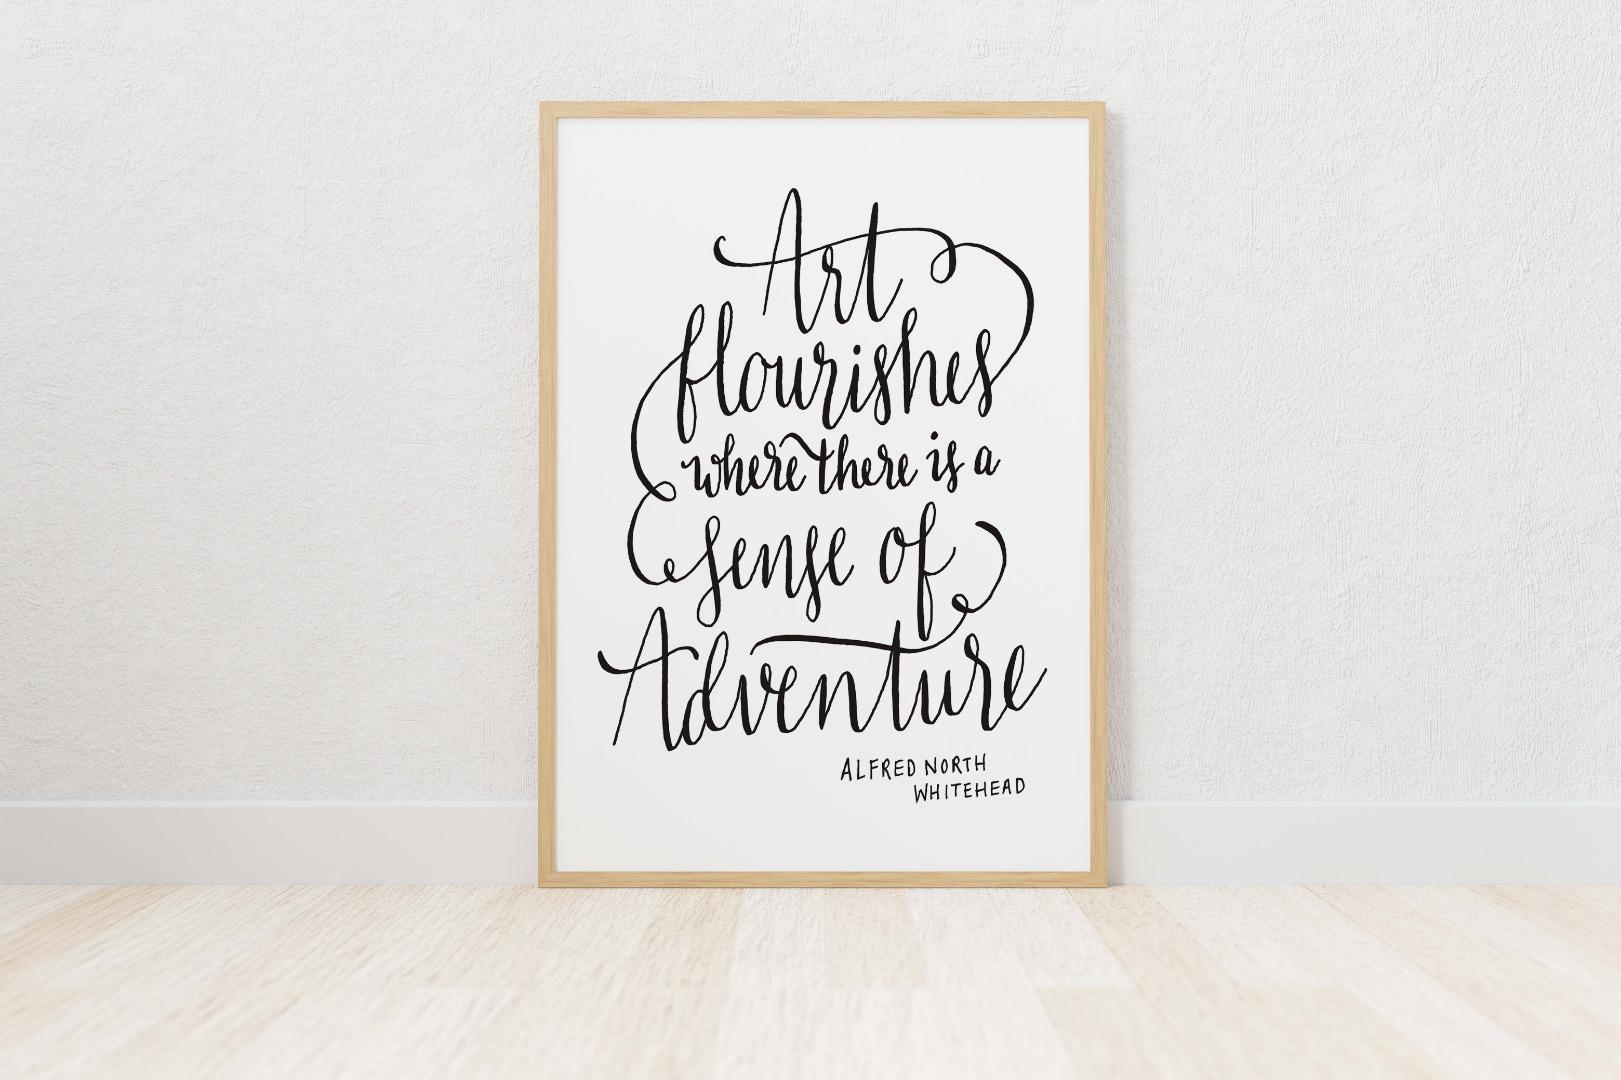 Art
flourishes
where there is a
sense of
Adventure
ALFRED NORTH
WHITEHEAD